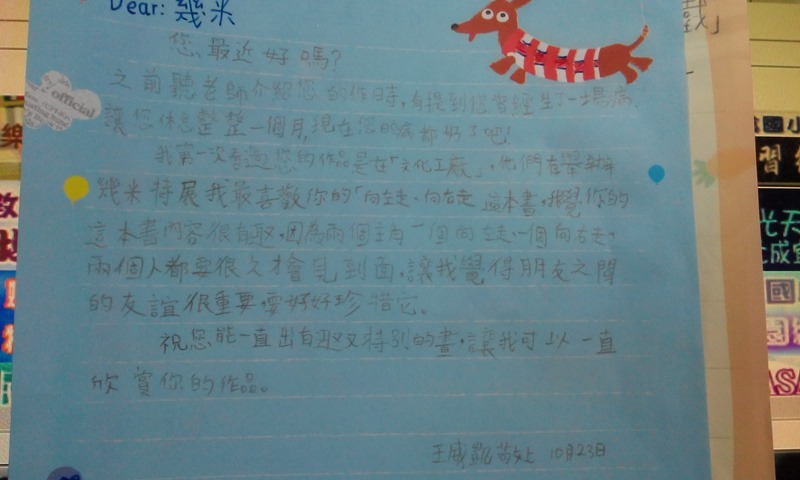 Dear: 幾米
您,最近好嗎?
之前聽老師介紹您的作品時,有提到您曾經生了一場病,
讓您休息整整一個月,現在您的病都好了吧!
我第一次看過您的作品是在「文化工廠」,他們在舉辦
幾米特展我最喜歡你的「向左走、向右走」這本書,我覺你的
這本書內容很有趣,因為兩個主角一個向左走、一個向右走,
兩個人都要很久才會見到面,讓我覺得朋友之間
的友誼很重要,要好好珍惜它。
祝您能一直出有趣又特別的書,讓我可以一直
欣賞你的作品。
王威凱敬上 10月23日
official
戲」
樂
教
小
習
光天
成
國
園